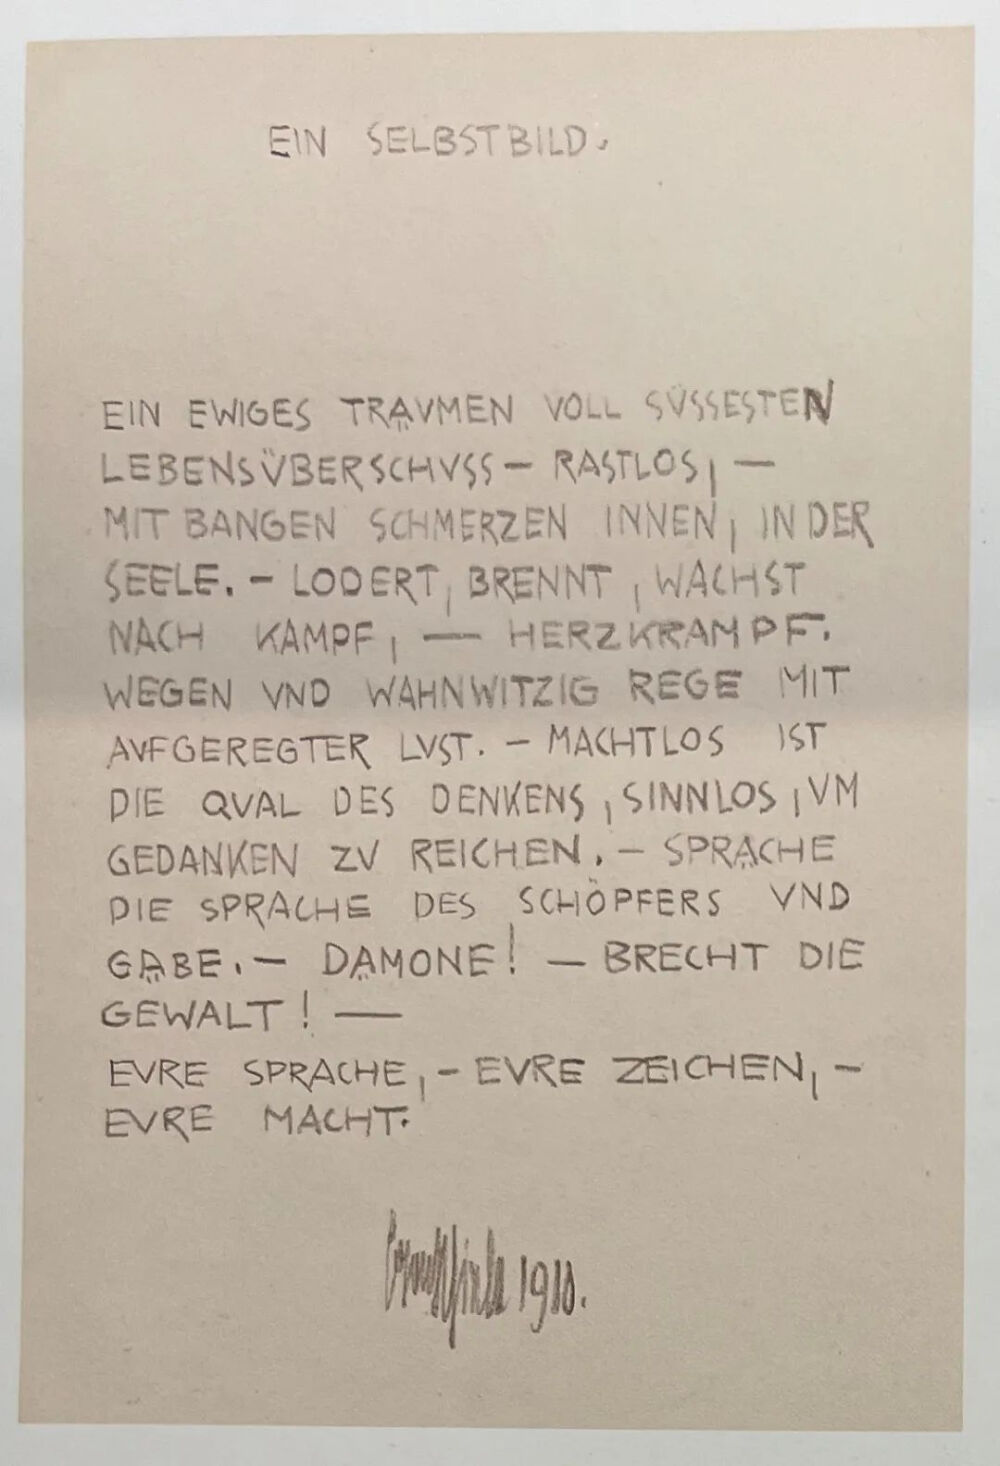 EIN SELBSTBILD.
EIN EWIGES TRÄVMEN VOLL SÜSSESTEN
LEBENSÜBERSCHVSS – RASTLOS, –
MIT BANGEN SCHMERZEN INNEN, IN DER
SEELE. – LODERT, BRENNT, WACHST
NACH KAMPF, — HERZKRAMPF.
WEGEN VND WAHNWITZIG REGE MIT
AVFGEREGTER LVST. – MACHTLOS IST
DIE QVAL DES DENKENS, SINNLOS, VM
GEDANKEN ZV REICHEN. – SPRÄCHE
DIE SPRACHE DES SCHÖPFERS VND
GÄBE. – DÄMONE! – BRECHT DIE
GEWALT! —
EVRE SPRACHE, – EVRE ZEICHEN, –
EVRE MACHT.
1910.